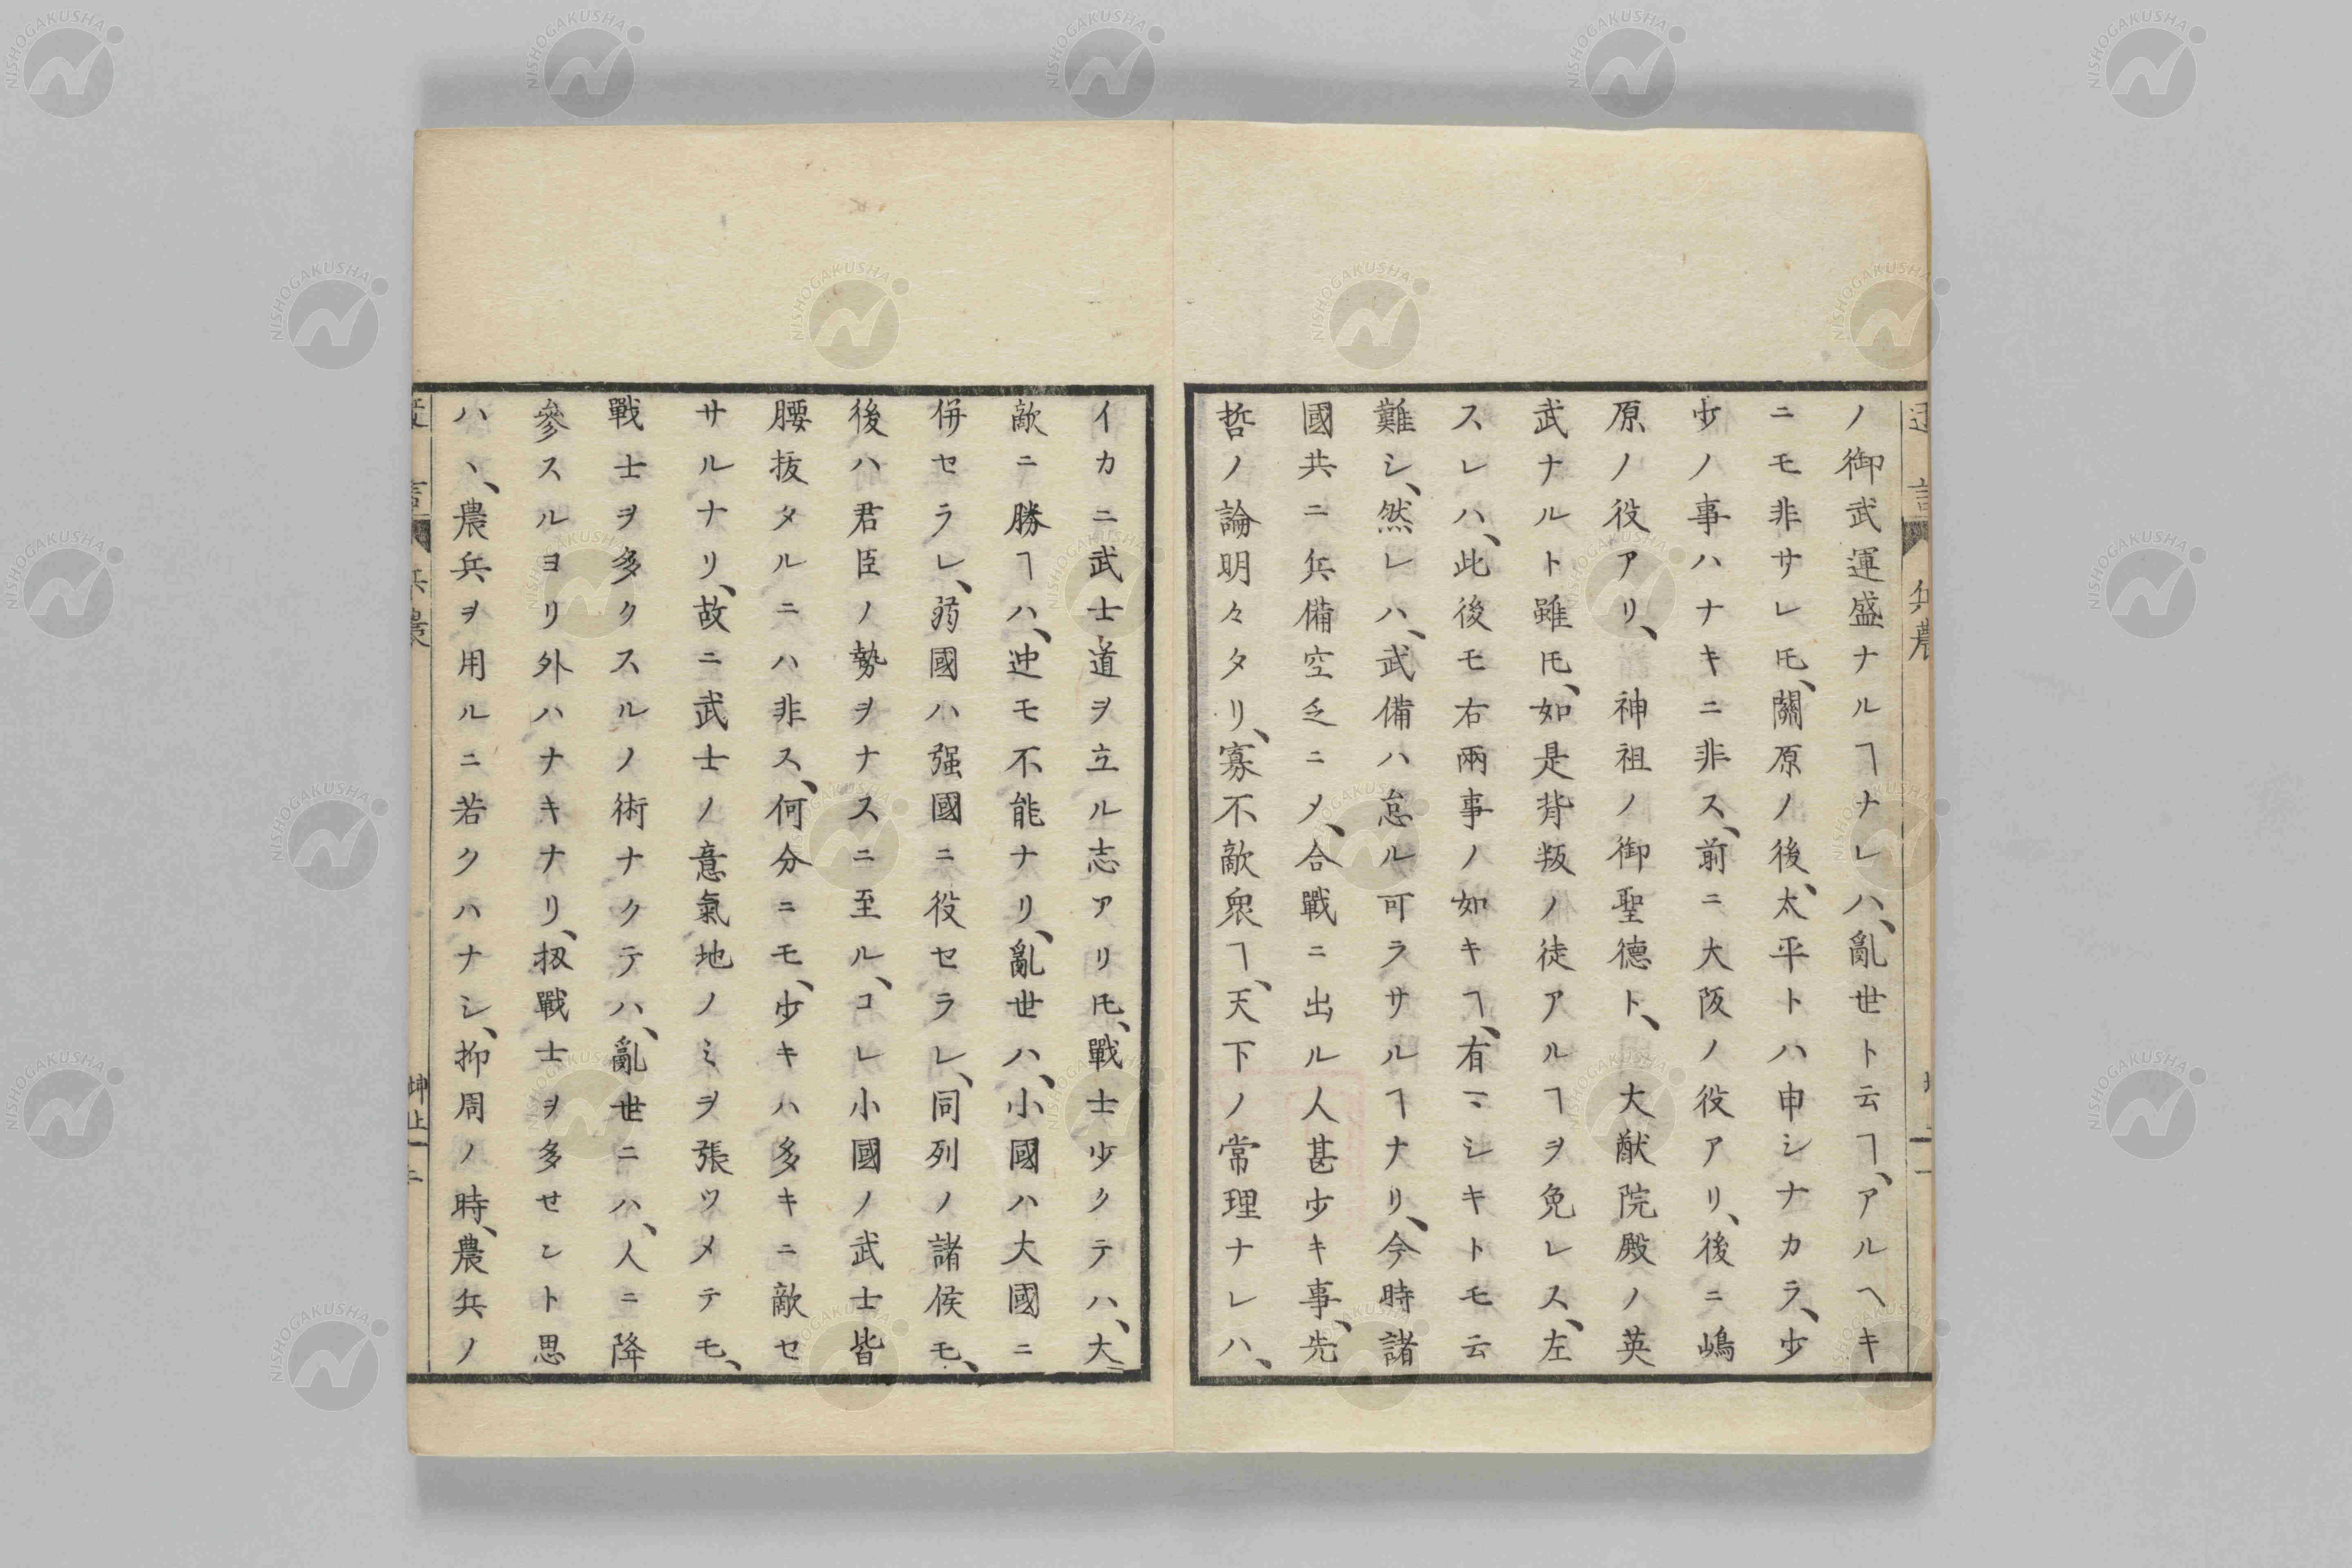 ノ御武運盛ナルヿナレハ、亂世ト云ヿ、アルヘキ
ニモ非サレ𪜈、關原ノ後、太平トハ申シナカラ、少
少ノ事ハナキニ非ス、前ニ大阪ノ役アリ、後ニ嶋
原ノ役アリ、神祖ノ御聖德ト、大猷院殿ノ英
武ナルト雖𪜈、如是背叛ノ徒アルヿヲ免レス、左
スレハ、此後モ右兩事ノ如キヿ、有マシキトモ云
難シ、然レハ、武備ハ怠ル可ラサルヿナリ、今時諸
國共ニ兵備空乏ニ〆、合戰ニ出ル人甚少キ事、先
哲ノ論明々タリ、寡不敵衆ヿ、天下ノ常理ナレハ、
イカニ武士道ヲ立ル志アリ𪜈、戰士少クテハ、大
敵ニ勝ヿハ、迚モ不能ナリ、亂世ハ、小國ハ大國ニ
併セラレ、弱國ハ强國ニ役セラレ、同列ノ諸侯モ、
後ハ君臣ノ勢ヲナスニ至ル、コレ小國ノ武士皆
腰拔タルニハ非ス、何分ニモ、少キハ多キニ敵セ
サルナリ、故ニ武士ノ意氣地ノミヲ張ツメテモ、
戰士ヲ多クスルノ術ナクテハ、亂世ニハ、人ニ降
參スルヨリ外ハナキナリ、扨戰士ヲ多せント思
ハヽ、農兵ヲ用ルニ若クハナシ、抑周ノ時、農兵ノ
兵農
坤上